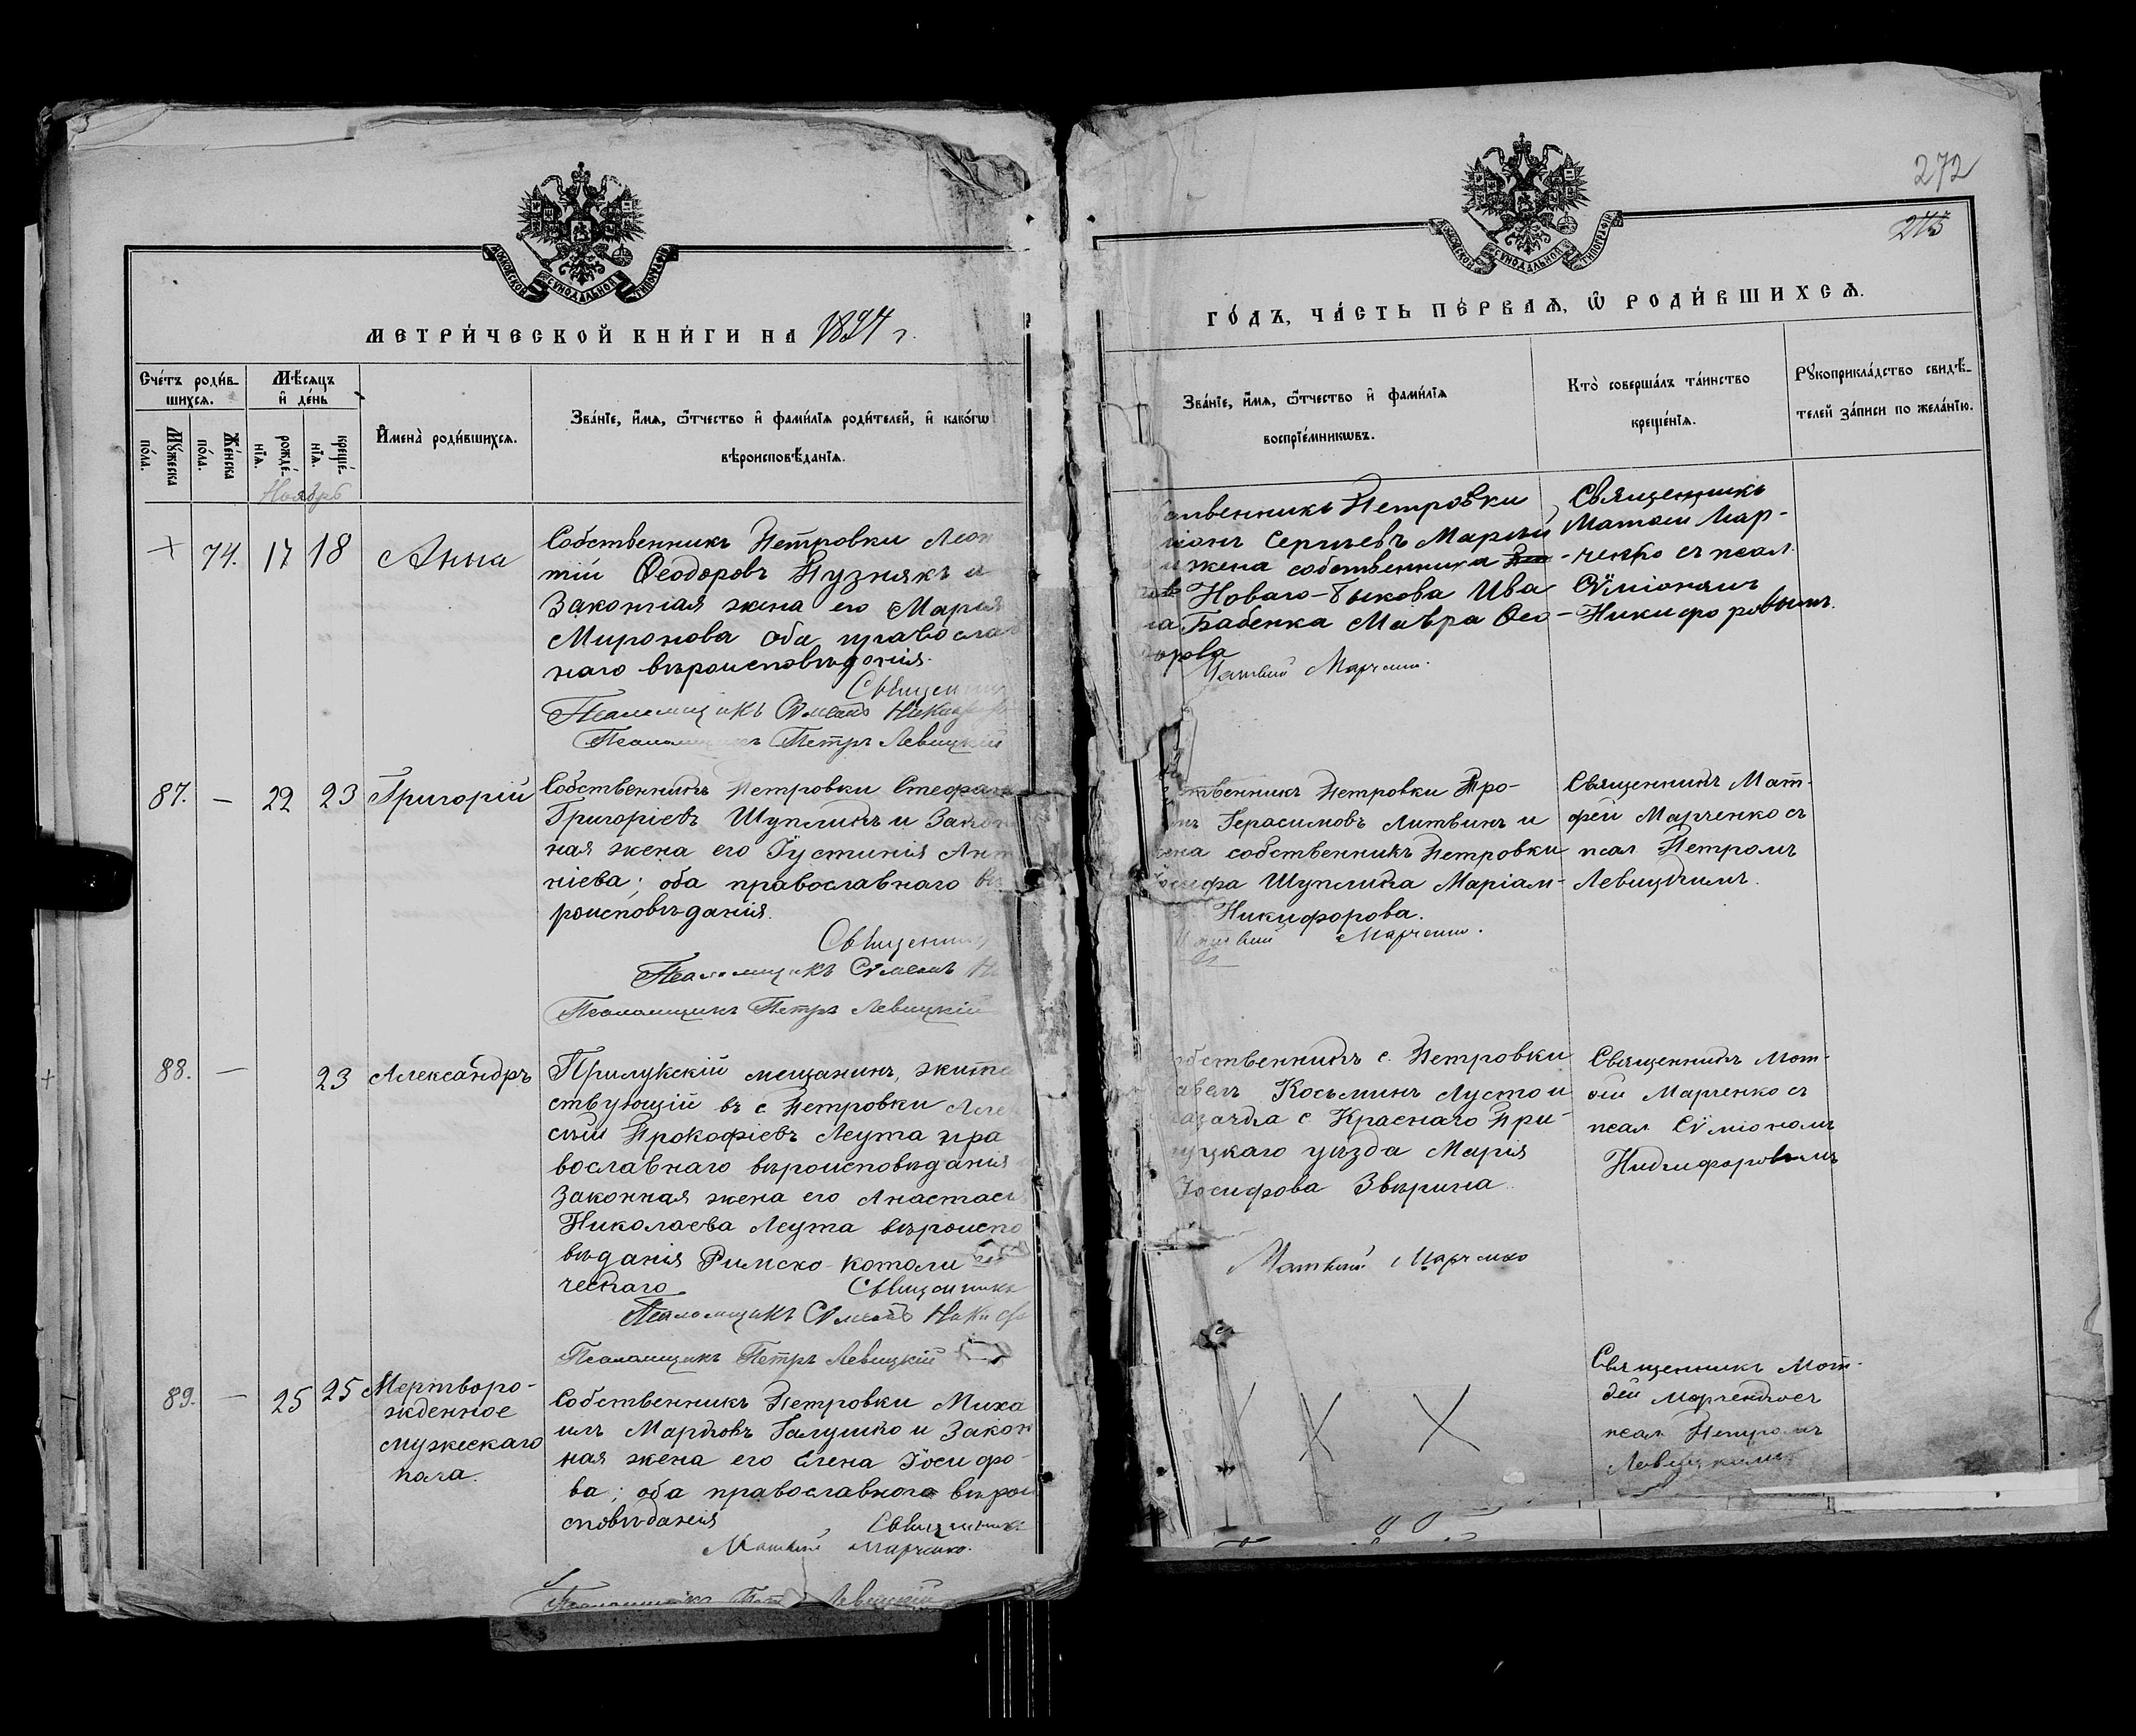 МОСКОВСКОЙ СѴНОДАЛЬНОЙ ТИПОГРАФІИ
МЕТРИ́ЧЕСКОЙ КНИ́ГИ НА 1894 г.
Сче́тъ роди́в-
шихсѧ.
Мѣ́сѧцъ
и҆ де́нь
Мꙋ́жеска
по́ла.
Же́нска
по́ла.
рожде́-
нїѧ.
креще́-
нїѧ.
И҆мена̀ роди́вшихсѧ.
Зва́нїе, и҆́мѧ, ѻ҆́тчество и҆ фами́лїѧ роди́телей, и҆ како́гѡ
вѣроисповѣ́данїѧ.
Ноябрь
74. 17 18 Анна
Собственникъ Петровки Леон
тій Ѳеодоровъ Пузнякъ и
Законная жена его Мария
Миронова оба православ
наго вѣроисповѣданія.
Священник
Псаломщикъ Сѵмеонъ Никифор
Псаломщикъ Петръ Левицкій
87. — 22 23 Григорій
Собственникъ Петровки Стефанъ
Григоріевъ Шупликъ и Закон
ная жена его Іустинія Анто
ніева; оба православнаго вѣ
роисповѣданія.
Священник
Псаломщикъ Сѵмеонъ Ни
Псаломщикъ Петръ Левицкій
88. — 23 Александръ
Прилукскій мещанинъ, жител
ствующій въ с. Петровки Алек
сѣй Прокофіевъ Леута пра
вославнаго вѣроисповѣданія
Законная жена его Анастасі
Николаева Леута вѣроиспо
вѣданія Римско-католи
ческаго
Священникъ
Псаломщикъ Сѵмеонъ Никиф
Псаломщикъ Петръ Левицкій
89. — 25 25 Мертворо-
жденное
мужескаго
пола.
Собственникъ Петровки Миха
илъ Марковъ Галушко и Закон
ная жена его Елена Іосифо-
ва; оба православнаго вѣрои
сповѣданія
Священникъ
Матвій Марченко.
Псаломщикъ Петръ Левицкій
272
275
МОСКОВСКОЙ СѴНОДАЛЬНОЙ ТИПОГРАФІИ
ГО́ДЪ, ЧА́СТЬ ПЕ́РВАѦ, Ѡ҆ РОДИ́ВШИХСѦ.
Зва́нїе, и҆́мѧ, ѻ҆́тчество и҆ фами́лїѧ
воспрїе́мникѡвъ.
Кто̀ соверша́лъ та́инство
креще́нїѧ.
Рꙋкоприкла́дство свидѣ́-
телей за́писи по жела́нїю.
ственникъ Петровки
Сергіевъ
и жена собственника
Новаго-Быкова Ива
на Бабенка Мавра Ѳео-
дорова
Матвій Марченко.
Священникъ
Матѳій Мар-
ченко съ псал.
Сѵміономъ
Никифоровымъ.
ственникъ Петровки Тро-
Герасимовъ Литвинъ и
жена собственникъ Петровки
Іосифа Шуплика Маріам-
Никифорова.
Матвій Марченко.
Священникъ Мат-
фей Марченко съ
псал Петромъ
Левицкимъ.
обственникъ с. Петровки
авелъ Косьминъ Лусто и
казачка с Краснаго При-
луцкаго уѣзда Марія
Іосифова Звѣрина.
Матвій Марченко
Священникъ Мат-
ѳій Марченко съ
псал Сѵміономъ
Никифоровымъ
Священникъ Мат-
ѳей Марченко съ
псал Петромъ
Левицкимъ